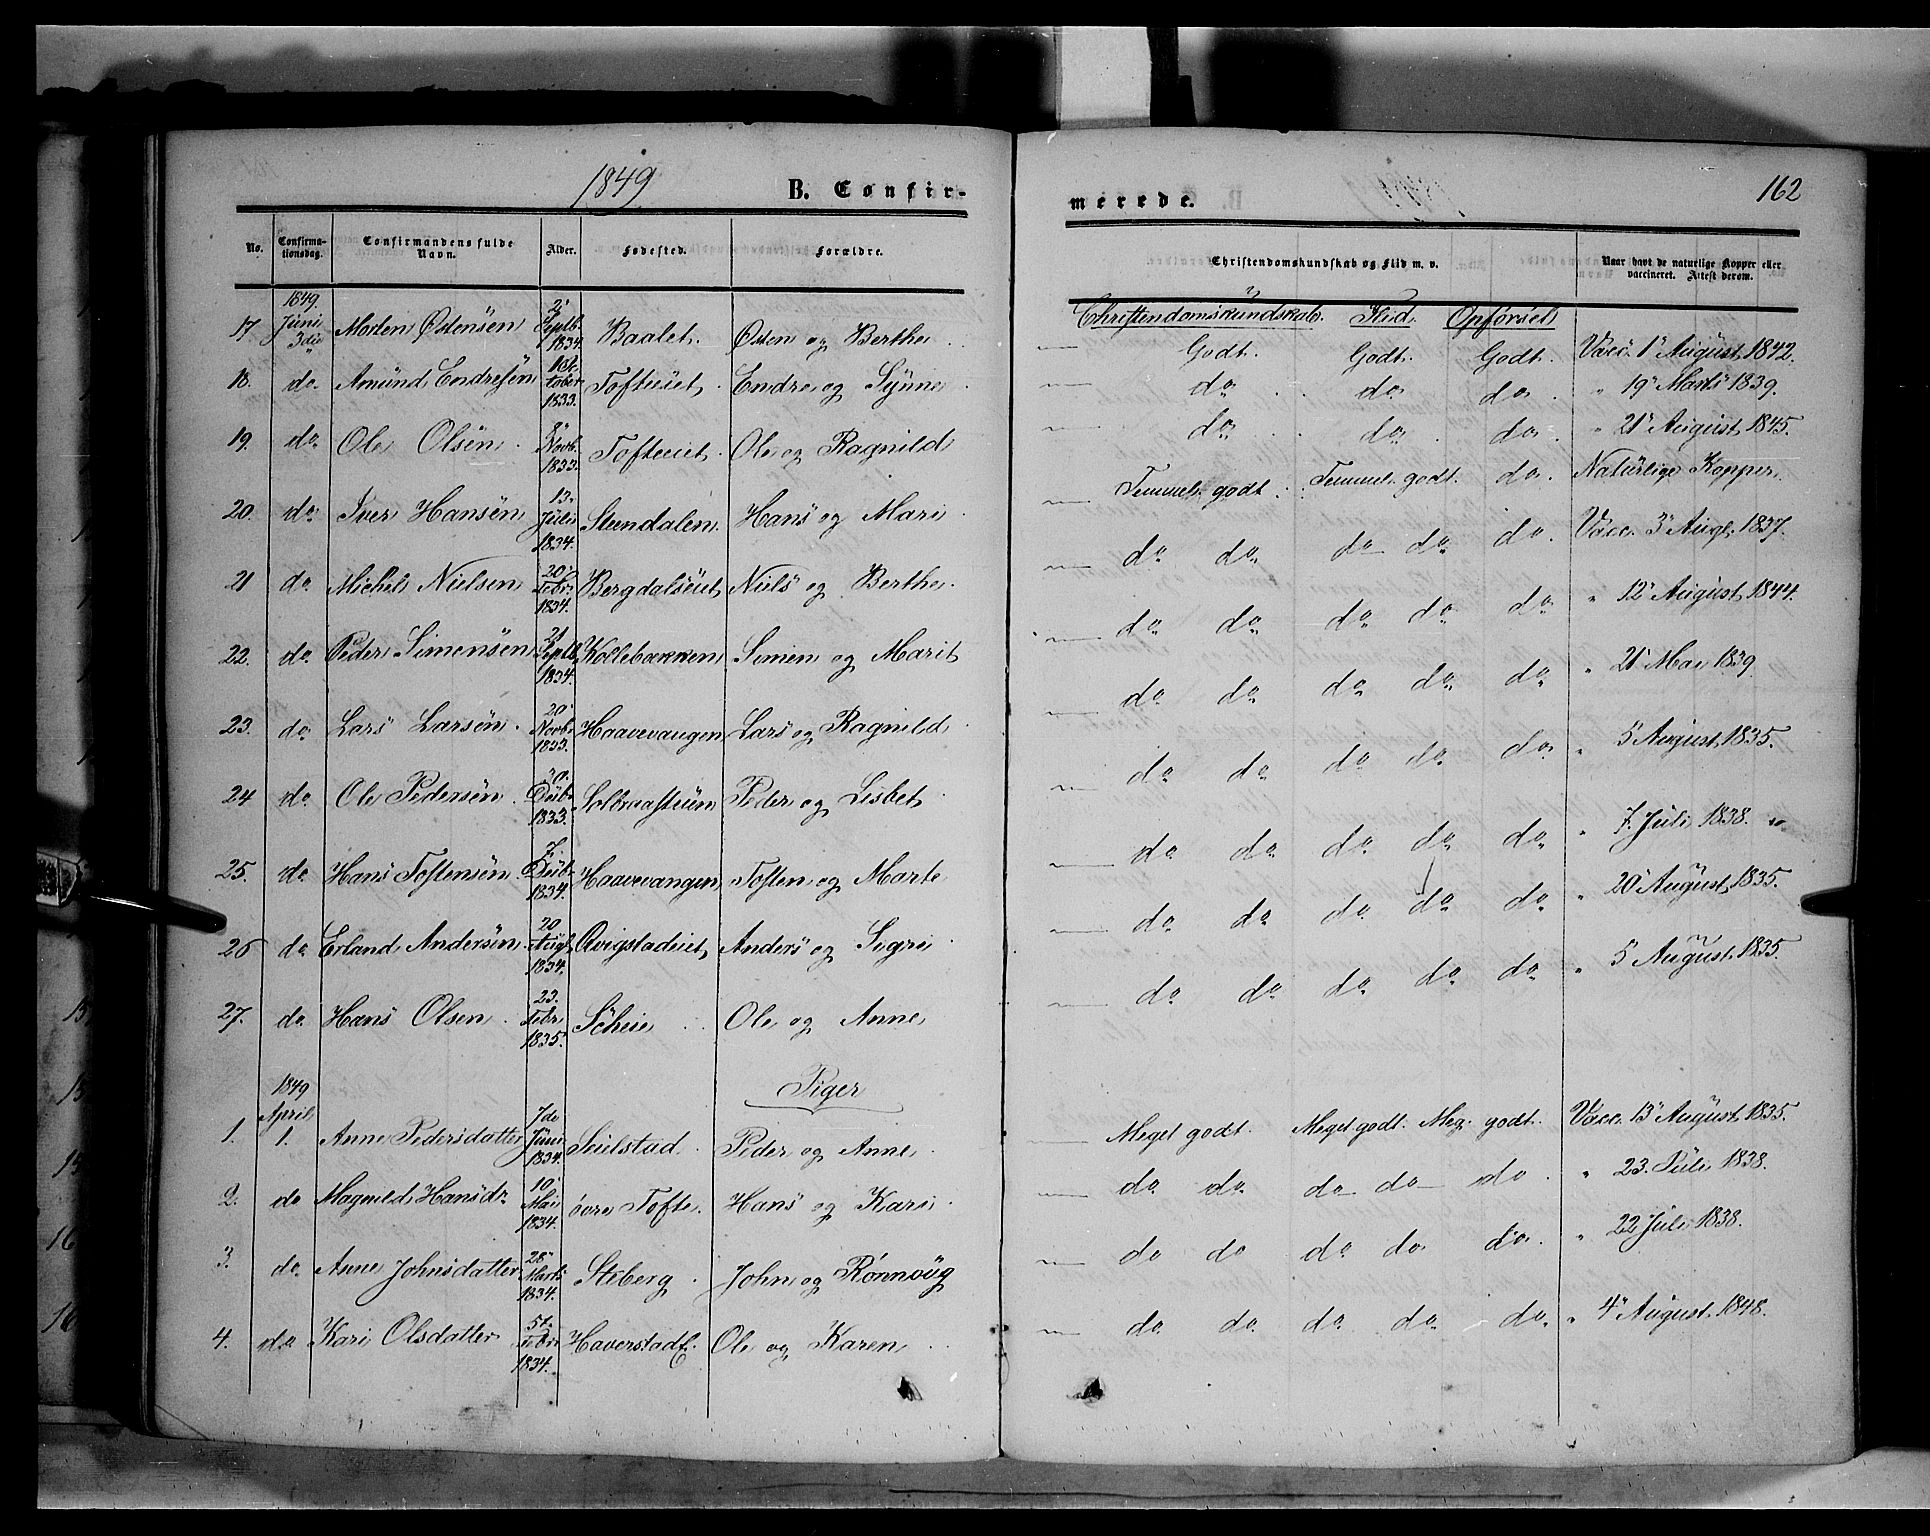 1849 B. Confirmerede. 162
No. Confirmationsdag. Confirmandens fulde Navn. Alder. Fødested. Forældre. Christendomskundskab og Flid m. v. Naar havt de naturlige Kopper eller vaccineret. Attest derom.
Christendomskundskab. Flid. Opførsel
17. 1849. Juni 3die Morten Østensen 2' Septb. 1834. Baalet. Østen og Berthe Godt. Godt. Godt. Vacc. 1' August 1842.
18. do. Amund Endresen October 1833. Tofteeiet Endre og Synne do do do " 19' Marts 1839.
19. do Ole Olsen 8' Novb. 1833. Tofteeiet. Ole og Ragnild do do do " 21' August 1845.
20. do Iver Hansen 13' Juli 1834. Steendalen Hans og Mari Temmel. godt. Temmel. godt. do. Naturlige Kopper.
21 do. Michel Nielsen 20' Febr. 1834. Bergdalseiet Niels og Berthe do do do do do. Vacc. 3' Augt. 1837.
22. do. Peder Simensen 21 Septb. 1834. Kollebækken Simen og Marit do do do do do " 12' August 1844.
23. do Lars Larsen 20' Novb. 1833. Haavevangen Lars og Ragnild do do do do do " 21' Mai 1839
24 do Ole Pedersen 30. Decb. 1833. Solbraastuen Peder og Lisbet do do do do do " 5 August 1835.
25. do Hans Toftensen 7. Decb. 1834. Haavevangen Toften og Marte do do do do do " 7. Juli 1838.
26 do Erland Andersen 20 Augt. 1834. Qvigstadeiet Anders og Sigri do do do do do " 20' August 1835.
27. do. Hans Olsen 23. Febr. 1835. Scheie Ole og Anne do do do do do " 5 August 1835.
Piger
1. 1849 April 1. Anne Pedersdatter 7de Juni 1834. Seielstad. Peder og Anne Meget godt. Meget godt. Meg. godt. Vacc. 13' August 1835.
2. do Magnild Hansdr 10' Mai 1834. øvre Tofte. Hans og Kari do do do do do " 23. Juli 1838.
3. do. Anne Johnsdatter 28' Marts 1834. Steberg John og Rønnoug do do do do do. " 22 Juli 1838.
4. do. Kari Olsdatter 5t. Febr. 1834. Haverstad Ole og Karen do do do do do " 4' August 1848.